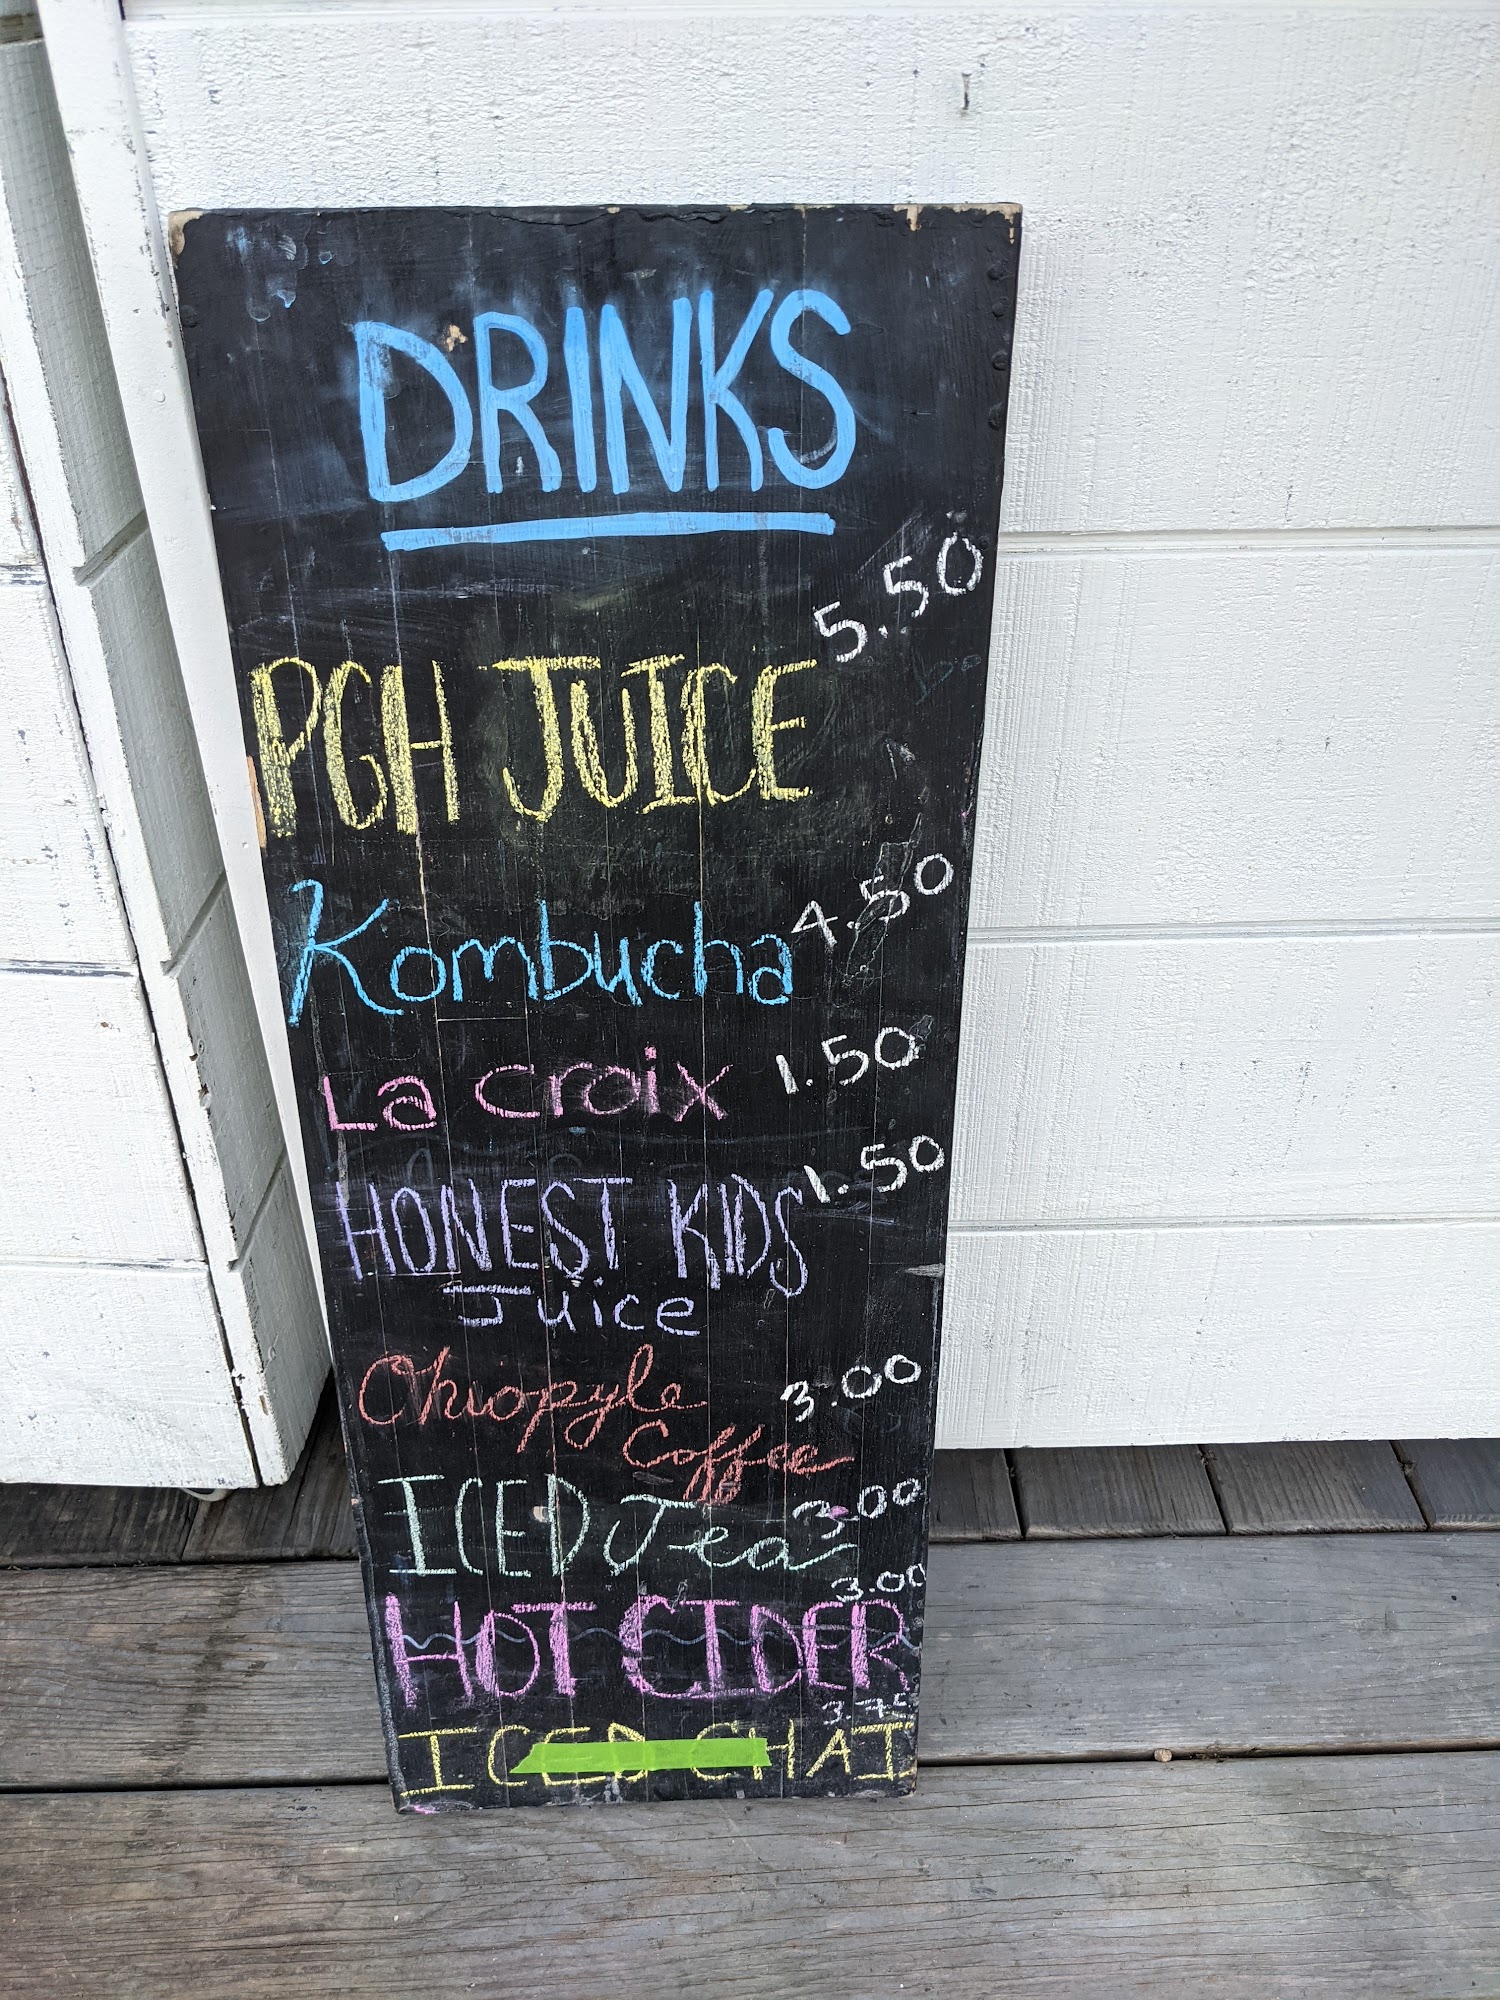 DRINKS
PGH JUICE 5.50
Kombucha 4.50
La Croix 1.50
HONEST KIDS 1.50
Juice
Ohiopyle 3.00
Coffee
ICED Tea 3.00
HOT CIDER 3.00
ICED CHAI 3.75